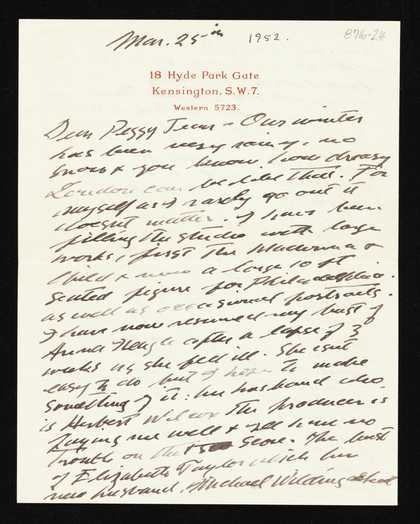 Mar. 25th 1952.
876-24
18 Hyde Park Gate
Kensington, S.W.7.
Western 5723.
Dear Peggy Jean - Our winter
has been very rainy, no
snow & you know how dreary
London can be like that. For
myself as I rarely go out it
doesn't matter. I have been
filling the studio with large
works, first the Madonna &
Child & now a large 10 ft
seated figure for Philadelphia.
as well as occasional portraits.
I have now resumed my bust of
Anna Neagle after a lapse of 3
weeks as she fell ill. She isn't
easy to do but I hope to make
something of it: her husband who
is Herbert Wilcox the producer is
paying me well & I'll have no
trouble on that score. The bust
of Elizabeth Taylor which her
new husband, Michael Wilding